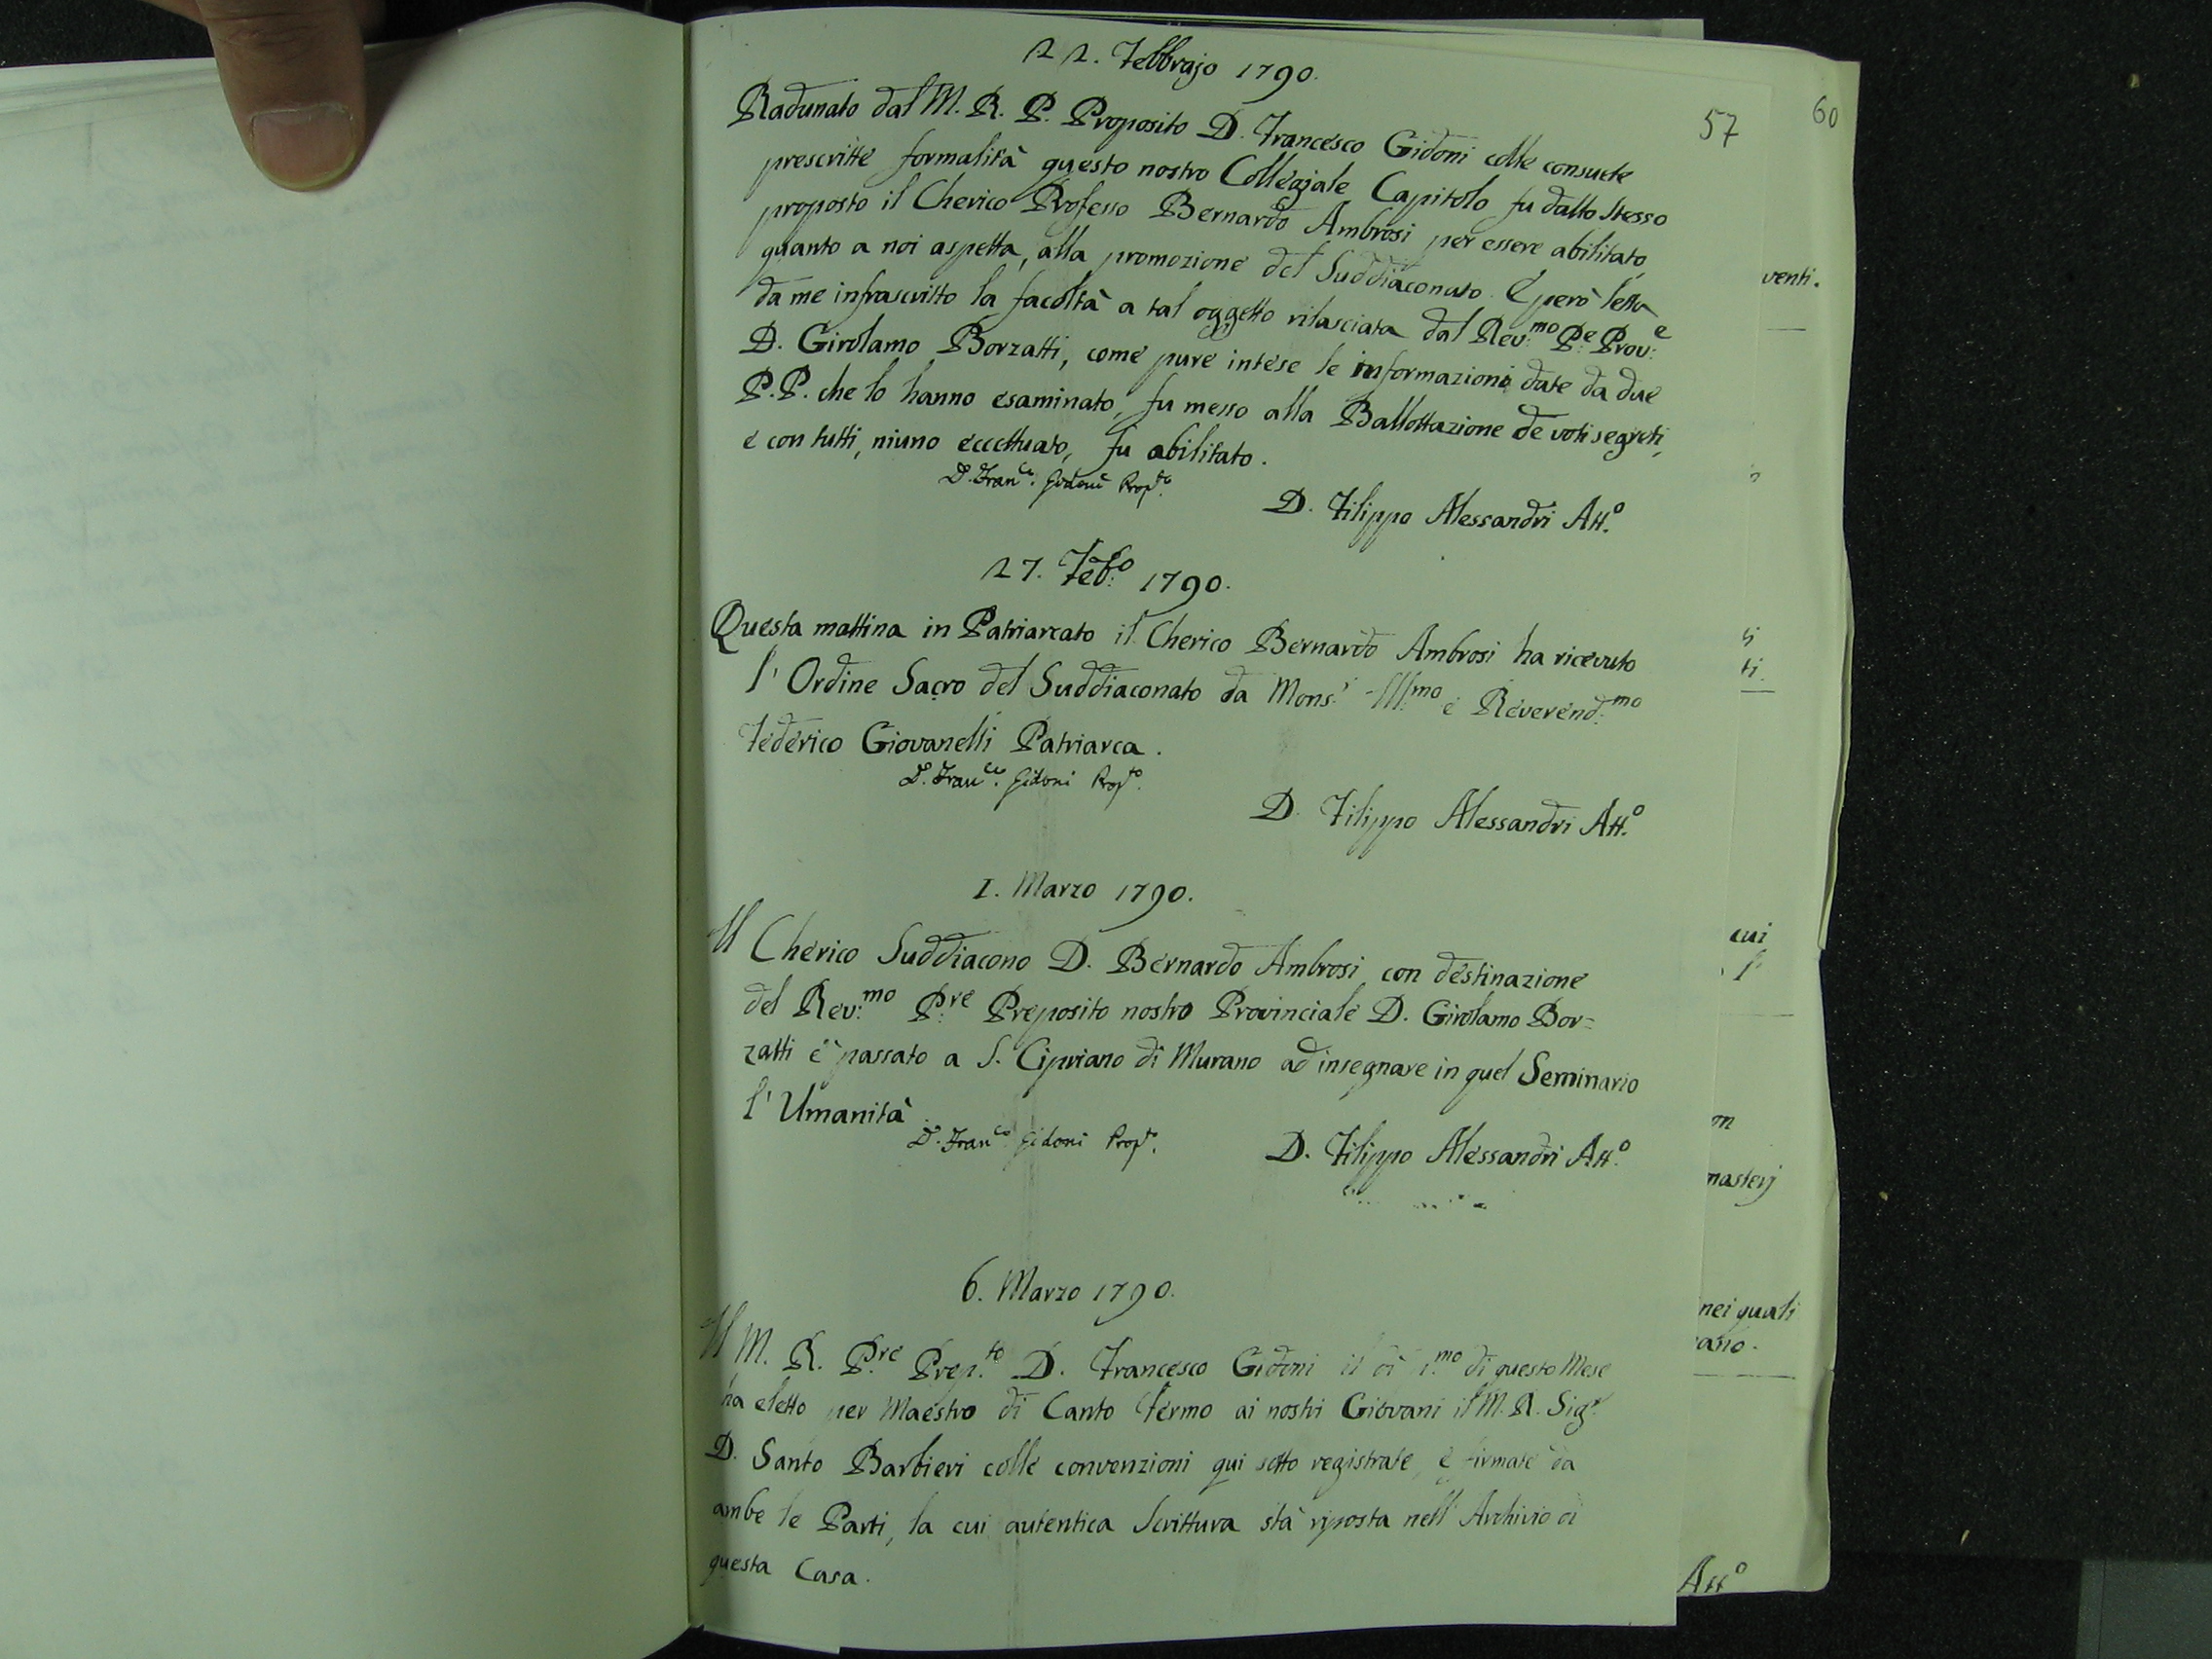 22. Febbrajo 1790.
57
60
Radunato dal M. R. P. Proposito D. Francesco Gidoni colle consuete
prescritte formalità questo nostro Collegiale Capitolo fu dallo stesso
proposto il Cherico Professo Bernardo Ambrosi per essere abilitato,
quanto a noi aspetta, alla promozione del Suddiaconato. E però letta
da me infrascritto la facoltà a tal oggetto rilasciata dal Rev:mo P:e Prov:e
D. Girolamo Borzatti, come pure intese le informazioni date da due
P.P. che lo hanno esaminato, fu messo alla Ballottazione de voti segreti,
e con tutti, niuno eccettuato, fu abilitato.
D. Fran.co Gidoni Prop.to
D. Filippo Alessandri Att.o
27. Feb:o 1790.
Questa mattina in Patriarcato il Cherico Bernardo Ambrosi ha ricevuto
l' Ordine Sacro del Suddiaconato da Mons.r Ill:mo e Reverend:mo
Federico Giovanelli Patriarca.
D. Fran.co Gidoni Prop.to
D. Filippo Alessandri Att.o
1. Marzo 1790.
Il Cherico Suddiacono D. Bernardo Ambrosi con destinazione
del Rev:mo P:re Preposito nostro Provinciale D. Girolamo Bor=
zatti è passato a S. Cipriano di Murano ad insegnare in quel Seminario
l' Umanità.
D. Fran.co Gidoni Prop.to
D. Filippo Alessandri Att.o
6. Marzo 1790.
Il M. R. P:re Prep.to D. Francesco Gidoni il dì 1.mo di questo Mese
ha eletto per Maestro di Canto Fermo ai nostri Giovani il M. R. Sig.r
D. Santo Barbieri colle convenzioni qui sotto registrate, e firmate da
ambe le Parti, la cui autentica Scrittura stà riposta nell' Archivio di
questa Casa.
venti.
ti
cui
l'
on
masterj
nei quali
ario.
Att.o